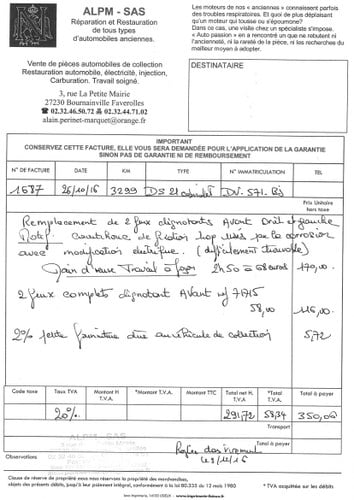 ALPM - SAS
Réparation et Restauration
de tous types
d'automobiles anciennes.
Vente de pièces automobiles de collection
Restauration automobile, électricité, injection,
Carburation. Travail soigné.
3, rue La Petite Mairie
27230 Bournainville Faverolles
☎ 02/32.46.50.72 02/32.44.71.02
alain.perinet-marquet@orange.fr
Les moteurs de nos « anciennes » connaissent parfois
des troubles respiratoires. Et quoi de plus déplaisant
qu'un moteur qui tousse ou s'époumone?
Dans ce cas, une visite chez un spécialiste s'impose.
« Auto passion » en a rencontré un que ne rebutent ni
l'ancienneté, ni la rareté de la pièce, ni les recherches du
malheur moyen à adopter.
DESTINATAIRE
IMPORTANT
CONSERVEZ CETTE FACTURE, ELLE VOUS SERA DEMANDÉE POUR L'APPLICATION DE LA GARANTIE
SINON PAS DE GARANTIE NI DE REMBOURSEMENT
N° DE FACTURE DATE KM TYPE N° IMMATRICULATION TEL
1687 26/10/16 3299 DS 21 cabriolet
Prix Unitaire
hors taxe
Remplacement de 2 feux clignotants Avant Droit et gauche
Motif trop usés par la corrosion
avec modification électrique. (difficilement trouvable)
Travail à façon 2h50 = 68 euros 170,00
2 feux complets clignotant Avant
58,00 116,00
2% petite fourniture due au véhicule de collection 5,72
Code taxe Taux TVA Montant H T.V.A. *Montant T.V.A. Montant TTC Total net H. T.V.A. *Total T.V.A. Total à payer
20% 291,72 58,34 350,06
Transport
Total à payer
ALPM - SAS
Observations
Clause de réserve de propriété nous nous réservons la propriété des marchandises,
objet des présents débits, jusqu'à leur paiement intégral, conformément à la loi 80.335 du 12 mars 1980
* TVA acquittée sur les débits